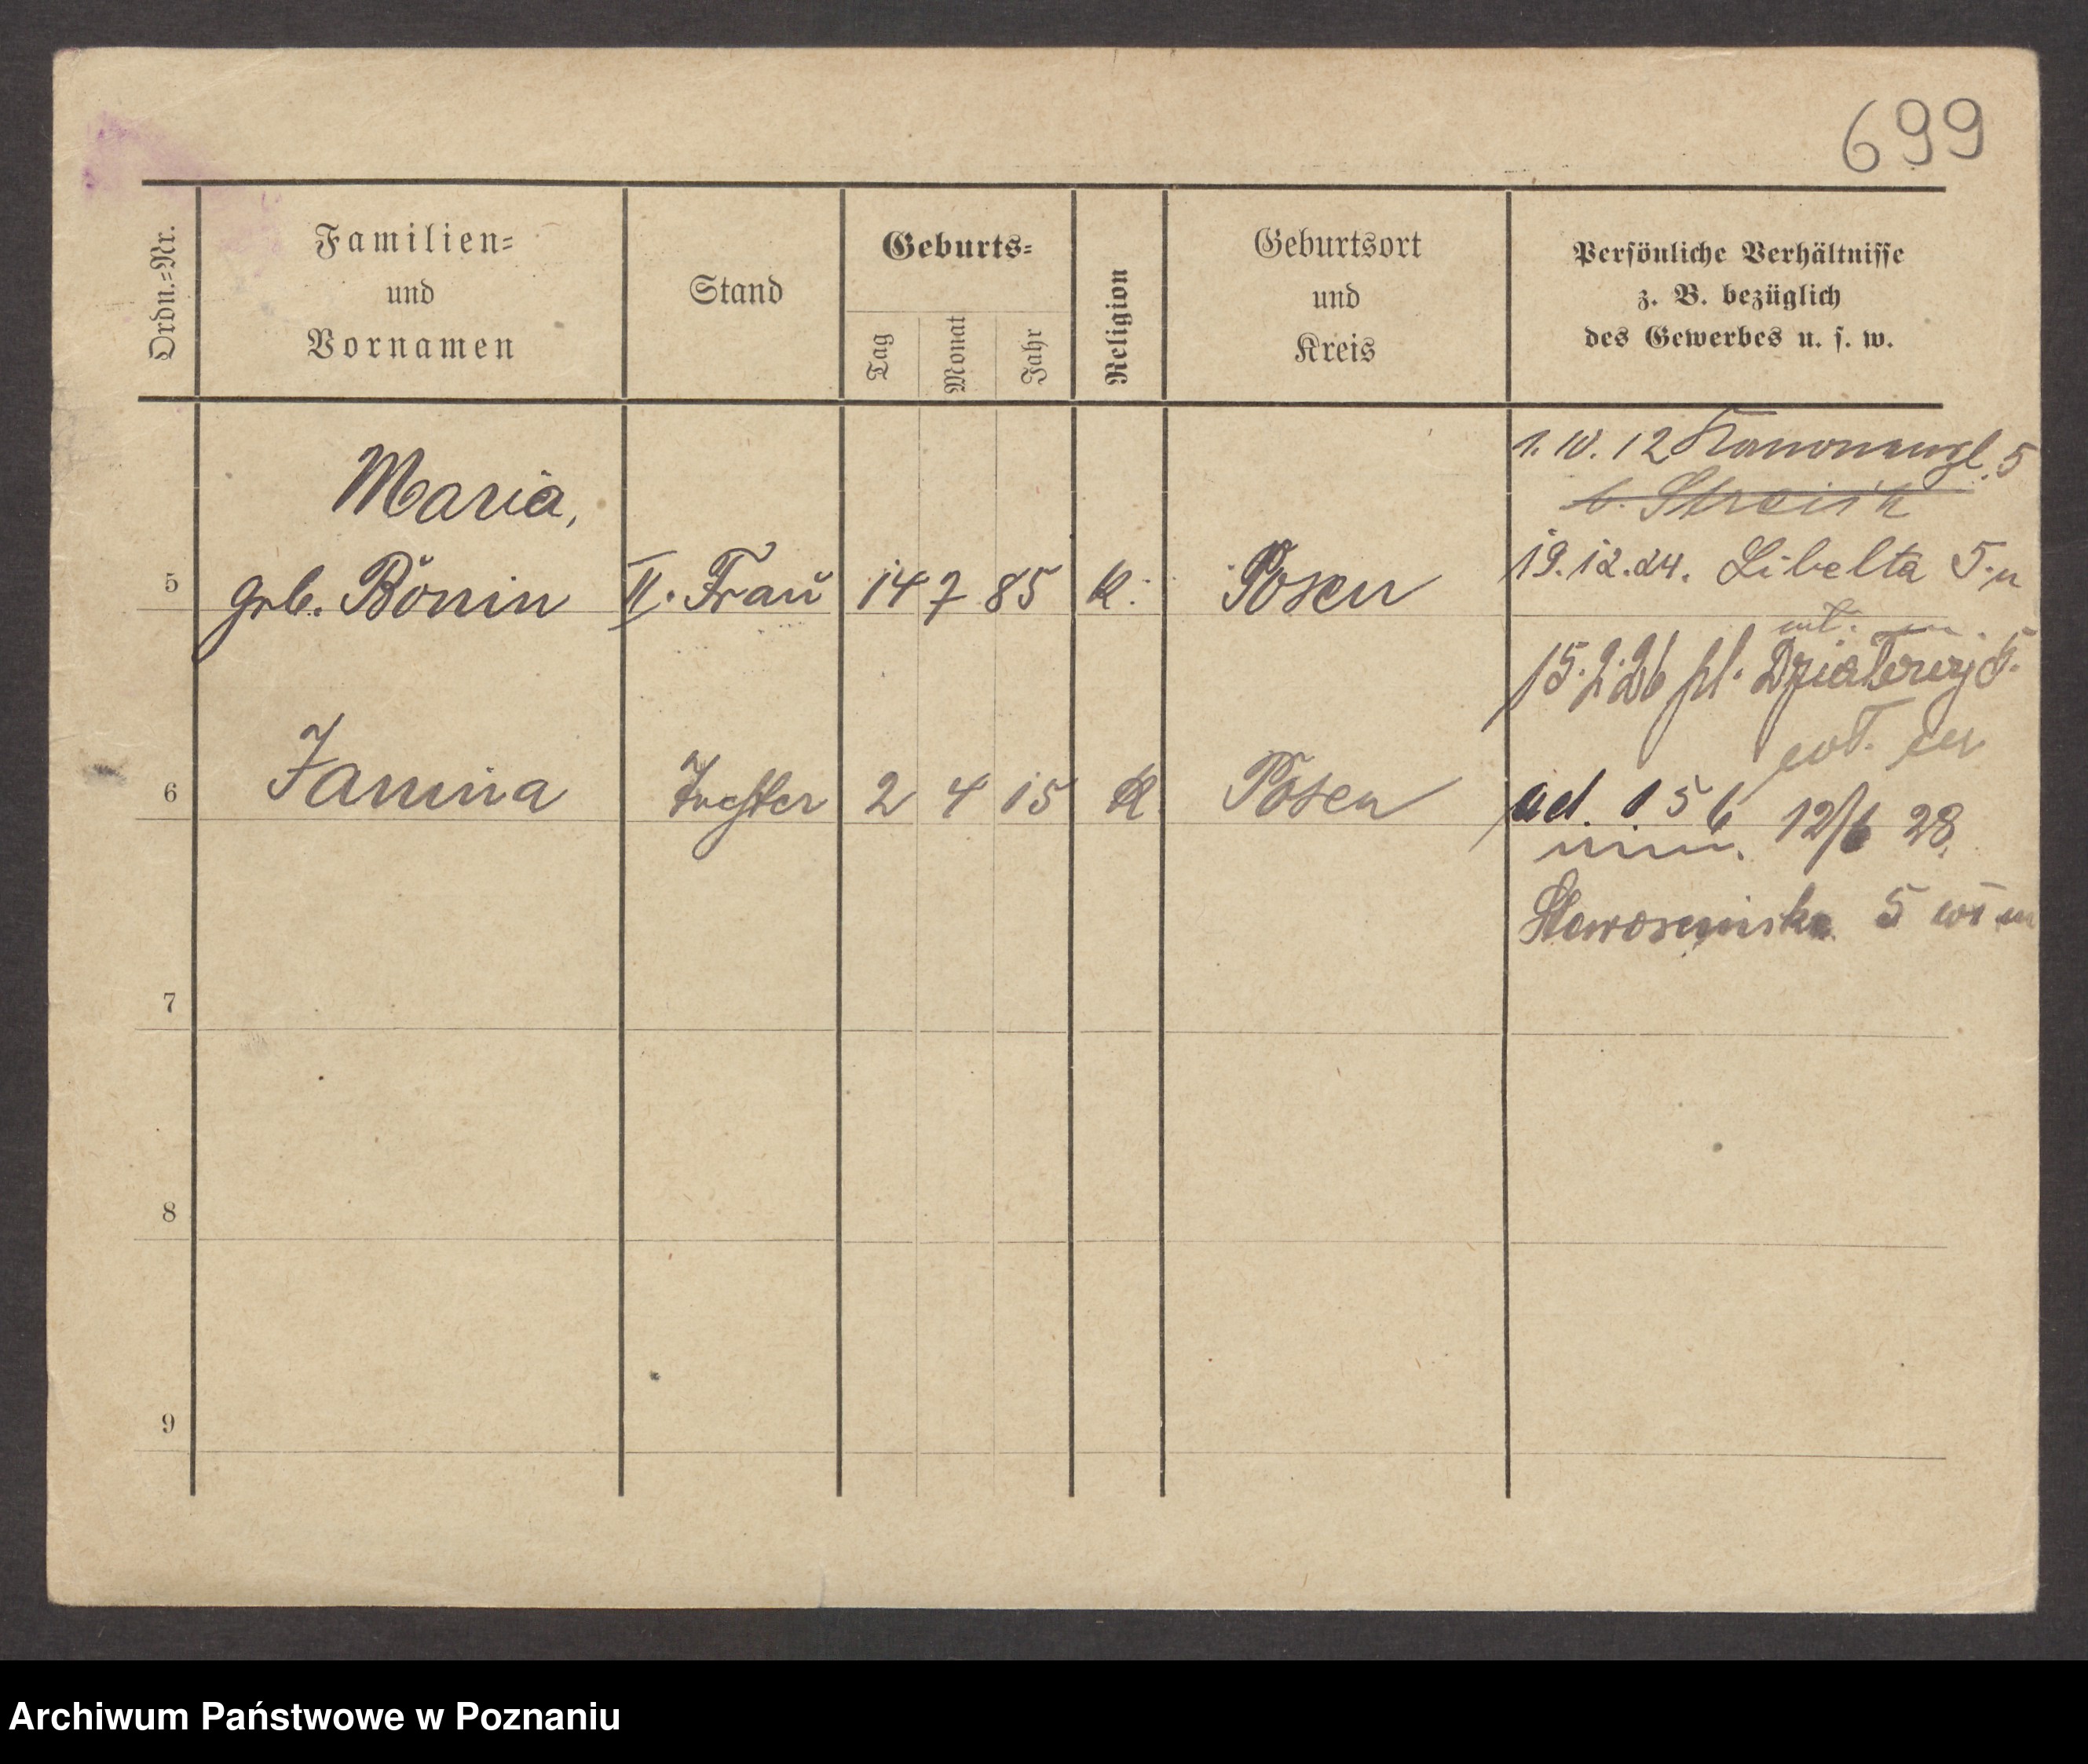 699
Ordn.=Nr.
Familien=
und
Vornamen
Stand
Geburts=
Tag
Monat
Jahr
Religion
Geburtsort
und
Kreis
Persönliche Verhältnisse
z. B. bezüglich
des Gewerbes u. s. w.
Maria,
5 geb. Bonin II. Frau 14 7 85 k. Posen
1. 10. 12 5
19.12.24. Libelta 5
15. 2. 26 pl. 5.
6 Janina Tochter 2 4 15 K Posen
ad. 1 5 6 12/6 28.
5
7
8
9
Archiwum Państwowe w Poznaniu